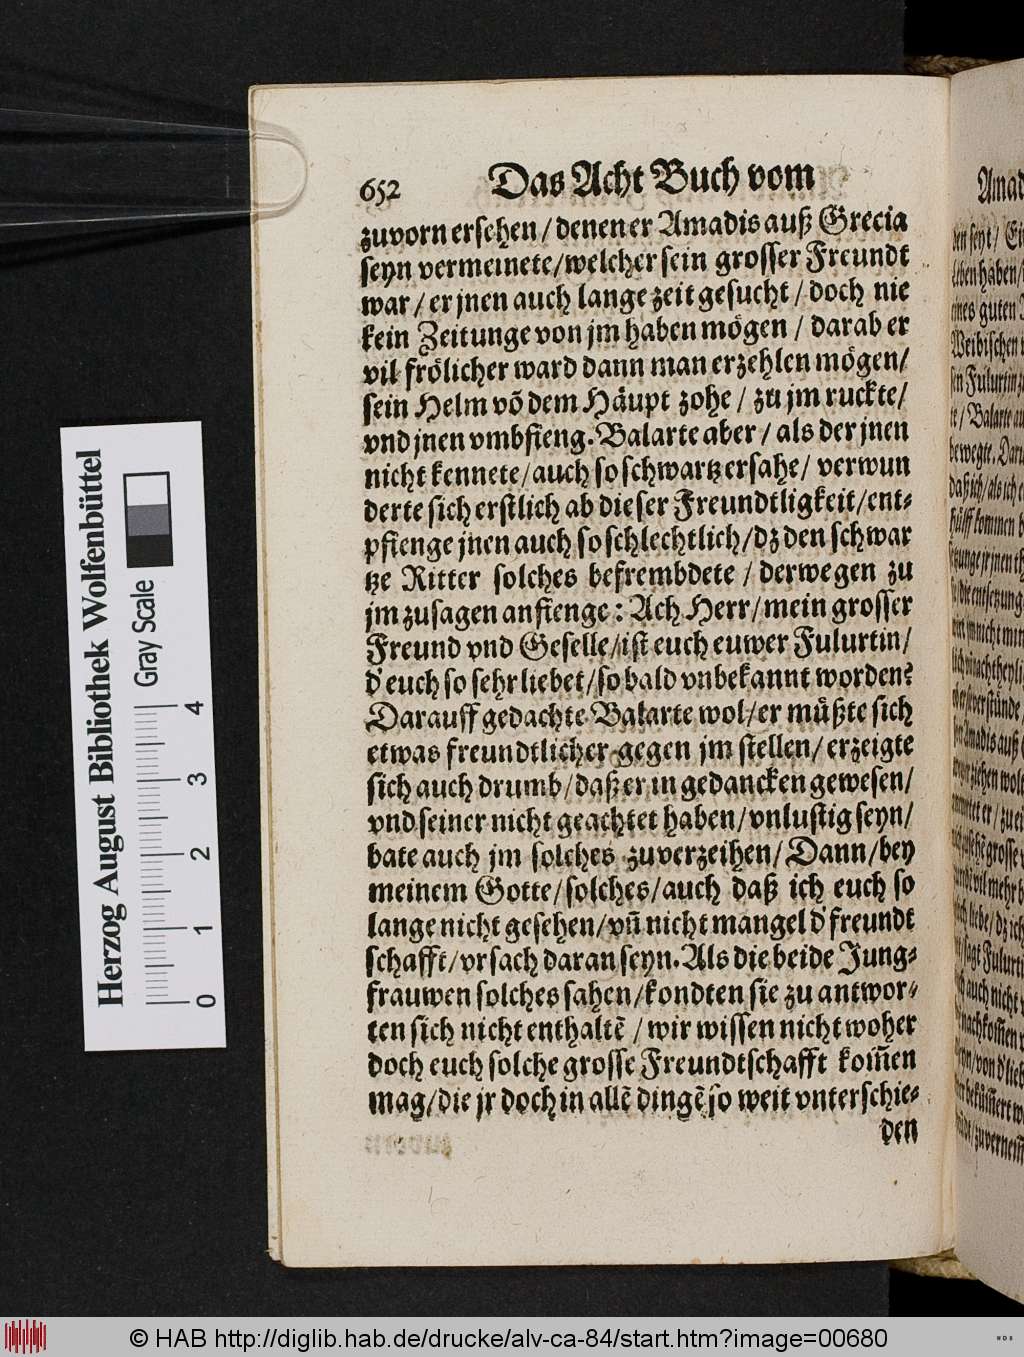 652 Das Acht Buch vom
zuvorn ersehen / denen er Amadis auß Grecia
seyn vermeinete/welcher sein grosser Freundt
war / er jnen auch lange zeit gesucht / doch nie
kein Zeitunge von jm haben mögen / darab er
vil frölicher ward dann man erzehlen mögen/
sein Helm võ dem Häupt zohe / zu jm ruckte/
vnd jnen vmbfieng. Balarte aber / als der jnen
nicht kennete/auch so schwartz ersahe/ verwun
derte sich erstlich ab dieser Freundtligkeit/ent-
pfienge jnen auch so schlechtlich/dz den schwar
tze Ritter solches befrembdete / derwegen zu
jm zusagen anfienge: Ach Herr/mein grosser
Freund vnd Geselle/ist euch euwer Fulurtin/
d' euch so sehr liebet/so bald vnbekannt worden?
Darauff gedachte Balarte wol/er müßte sich
etwas freundtlicher gegen jm stellen/ erzeigte
sich auch drumb/daß er in gedancken gewesen/
vnd seiner nicht geachtet haben/vnlustig seyn/
bate auch jm solches zuverzeihen/ Dann/bey
meinem Gotte/solches/auch daß ich euch so
lange nicht gesehen/vñ nicht mangel d' freundt
schafft/vrsach daran seyn. Als die beide Jung-
frauwen solches sahen/kondten sie zu antwor-
ten sich nicht enthaltẽ / wir wissen nicht woher
doch euch solche grosse Freundtschafft kom̃en
mag/die jr doch in allẽ dingẽ so weit vnterschie-
den
Herzog August Bibliothek Wolfenbüttel
Gray Scale
0 1 2 3 4
© HAB http://diglib.hab.de/drucke/alv-ca-84/start.htm?image=00680